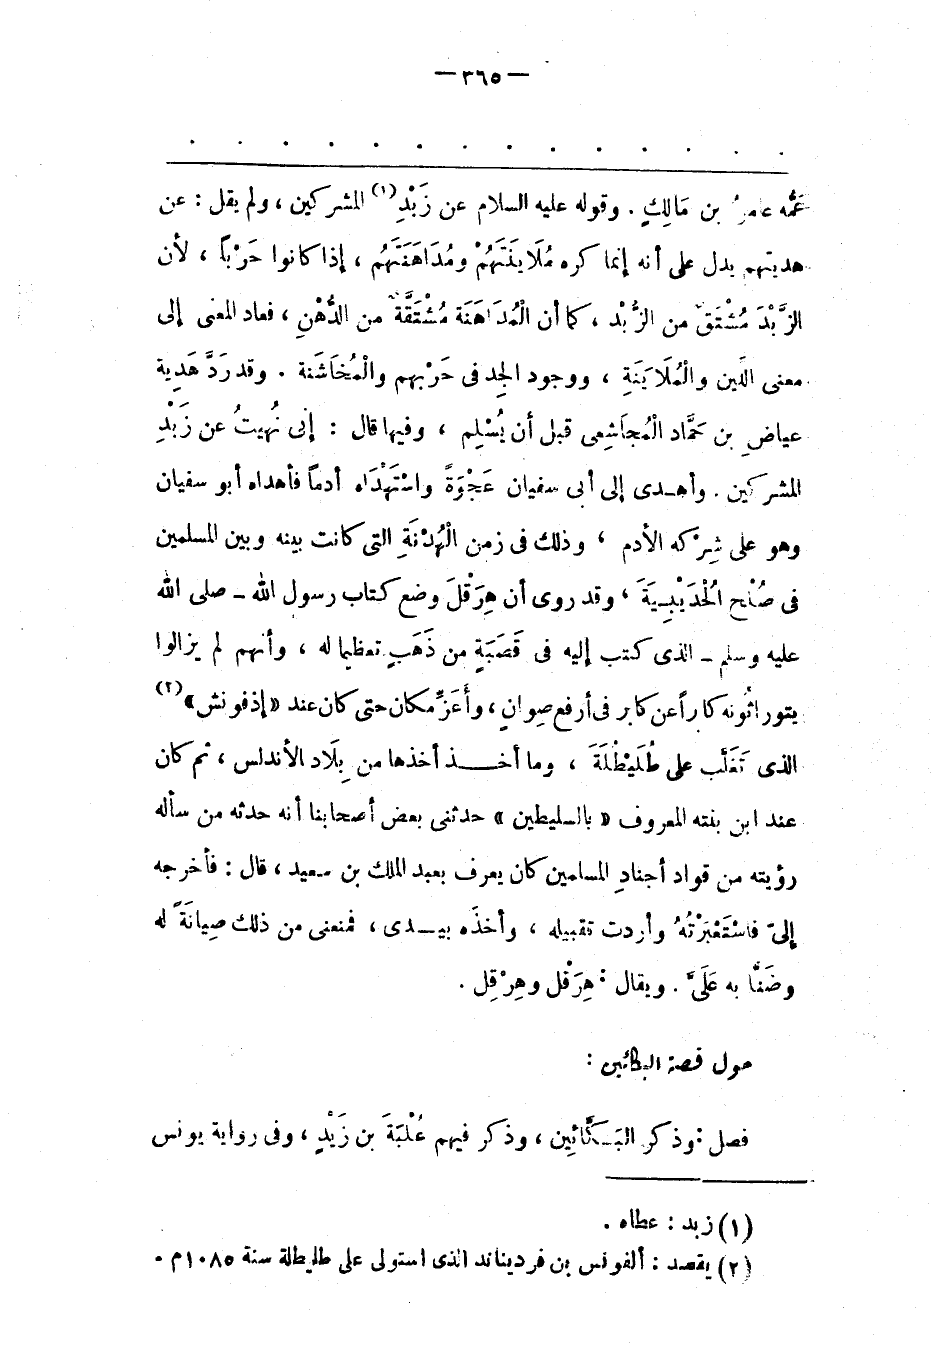 — ٣٦٥ —
عَمُّه عامرُ بن مَالِكٍ . وقوله عليه السلام عن زَبْدِ(١) المشركين ، ولم يقل : عن
هديتهم يدل على أنه إنما كره مُلَايَنَتَهُمْ ومُدَاهَنَتَهُم ، إذا كانوا حَرْباً ، لأن
الزَّبْدَ مُشْتَقٌّ من الزُّبْد ، كما أن الْمُدَاهَنَة مُشْتَقَّةٌ من الدُّهْنِ ، فعاد المعنى إلى
معنى اللين والْمُلَايَنَةِ ، ووجود الجد فى حَرْبهم والْمُخَاشَنة . وقد رَدَّ هَدِية
عياضِ بن حَمَّاد الْمُجاشِعى قبل أن يُسْلِم ، وفيها قال : إنى نُهيتُ عن زَبْدِ
المشركين . وأهـدى إلى أبى سفيان عَجْوَةً واسْتَهْدَاه أدماً فأهداه أبو سفيان
وهو على شِرْكه الأدم ، وذلك فى زمن الْهُدْنَةِ التى كانت بينه وبين المسلمين
فى صُلْح الْحُدَيْبِيَةَ ، وقد روى أن هِرَقْلَ وضع كتاب رسول الله ــ صلى الله
عليه وسلم ــ الذى كتب إليه فى قَصَبَةٍ من ذَهَبٍ تعظيما له ، وأنهم لم يزالوا
يتوراثُونه كابراً عن كابر فى أرفع صِوانٍ ، وأَعَزِّ مكان حتى كان عند «إذفونش»(٢)
الذى تَغَلَّب على طُلَيْطُلَةَ ، وما أخـــذ أخذها من بِلَاد الأندلس ، ثم كان
عند ابن بنته المعروف « بالسليطين » حدثنى بعض أصحابنا أنه حدثه من سأله
رؤيته من قواد أجنادِ المسلمين كان يعرف بعبد الملك بن سعيد ، قال : فأخرجه
إلىّ فاسْتَعْبَرْتُهُ وأردت تقبيله ، وأخذَه بيـدى ، فمنعنى من ذلك صِيانَةً له
وضَنًّا به عَلَىَّ . ويقال : هِرَقْل وهِرْقِل .
حول قصة البكائين :
فصل : وذكر البَـكَّائِين ، وذكر فيهم عُلْبَةَ بن زَيْدٍ ، وفى رواية يونس
(١) زبد : عطاء .
(٢) يقصد : ألفونس بن فرديناند الذى استولى على طليطلة سنة ١٠٨٥م .